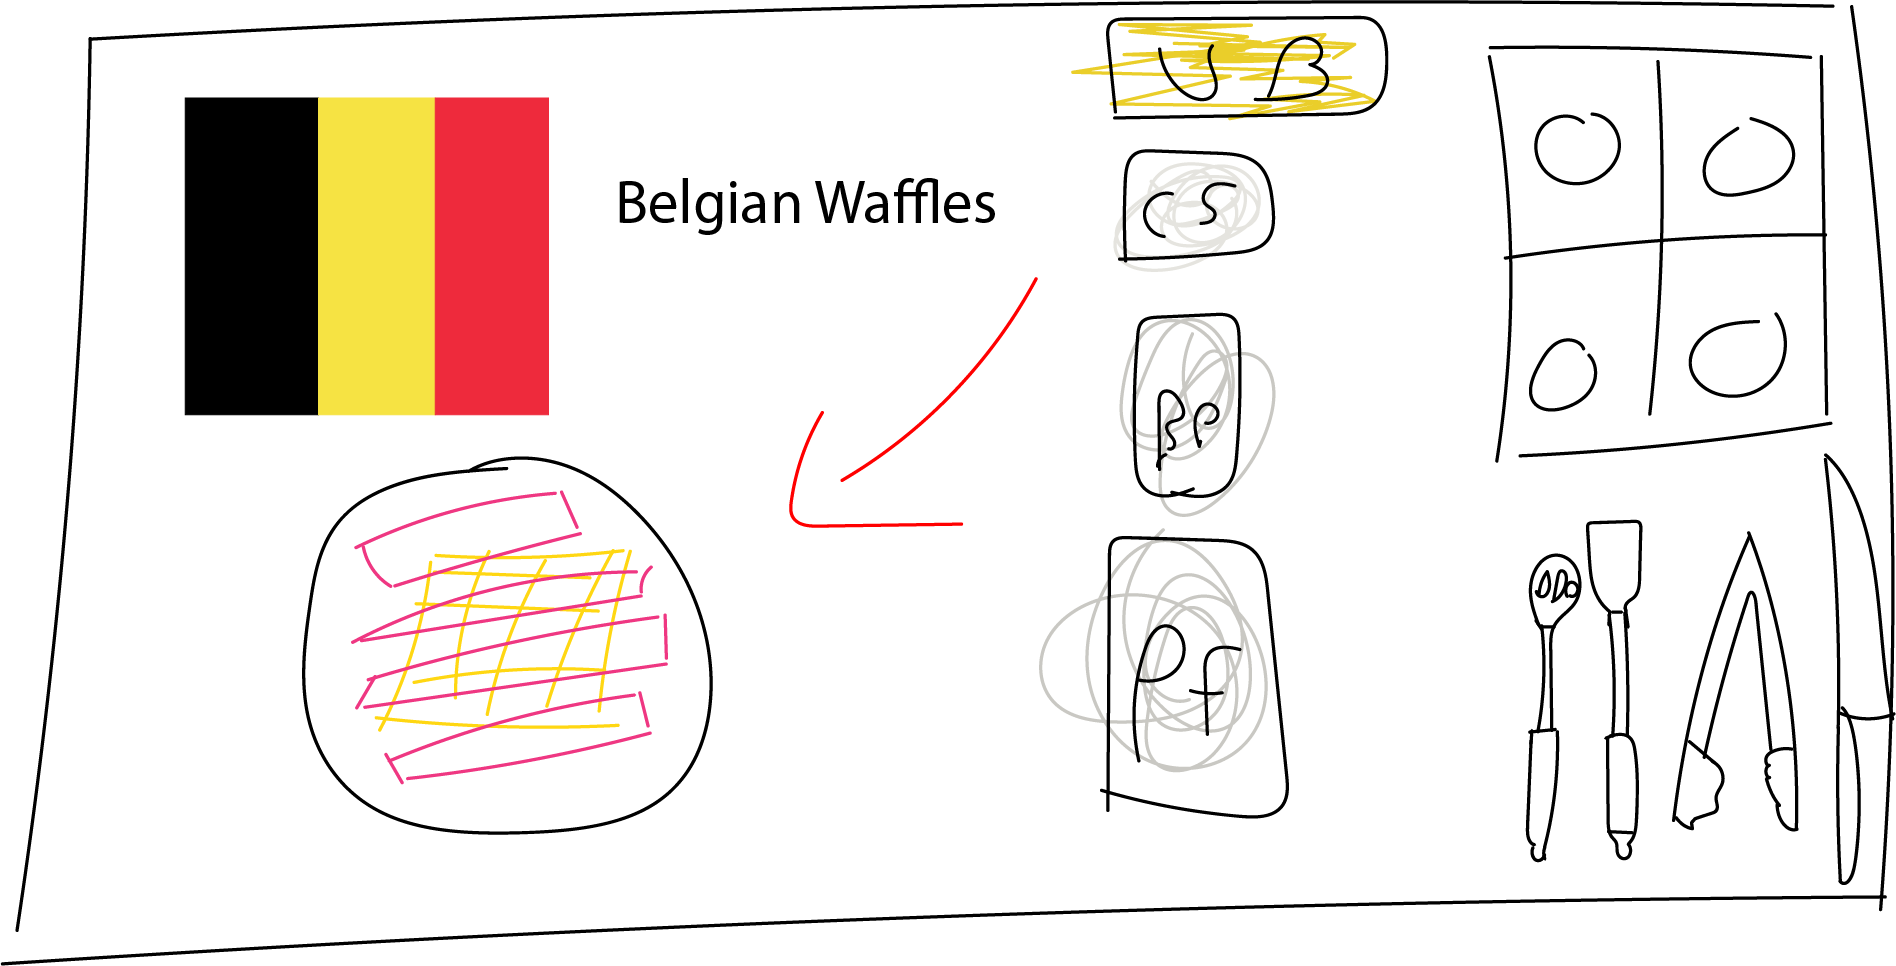 Belgian Waffles
UB
CS
BP
Pf